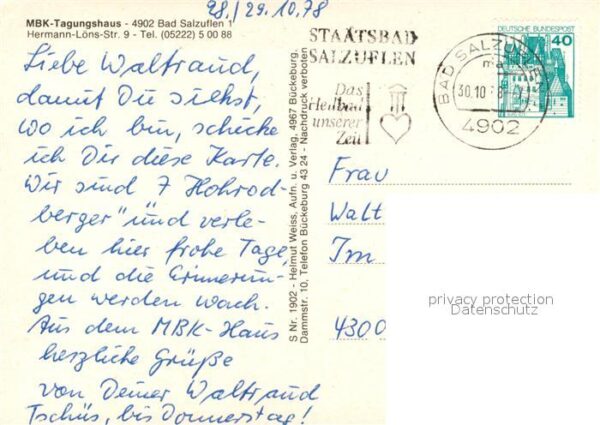 28./29.10.78
MBK-Tagungshaus - 4902 Bad Salzuflen 1
Hermann-Löns-Str. 9 - Tel. (05222) 5 00 88
Liebe Waltraud,
damit Du siehst,
wo ich bin, schicke
ich Dir diese Karte.
Wir sind 7 "Hohrod-
berger" und verle-
ben hier frohe Tage
und die Erinnerun-
gen werden wach.
Aus dem MBK-Haus
herzliche Grüße
von Deiner Waltraud
Tschüs, bis Donnerstag!
S Nr. 1902 - Helmut Weiss, Aufn. u. Verlag, 4967 Bückeburg,
Dammstr. 10, Telefon Bückeburg 43 24 - Nachdruck verboten
STAATSBAD
SALZUFLEN
Das
Heilbad
unserer
Zeit
BAD SALZUFLEN
ma
30.10.78
4902
DEUTSCHE BUNDESPOST
40
Frau
Walt
Im
4300
privacy protection
Datenschutz